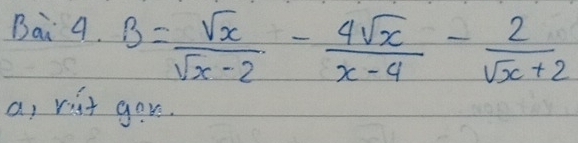 Bài 4. B = \frac{\sqrt{x}}{\sqrt{x}-2} - \frac{4\sqrt{x}}{x-4} - \frac{2}{\sqrt{x}+2}
a, rút gọn.